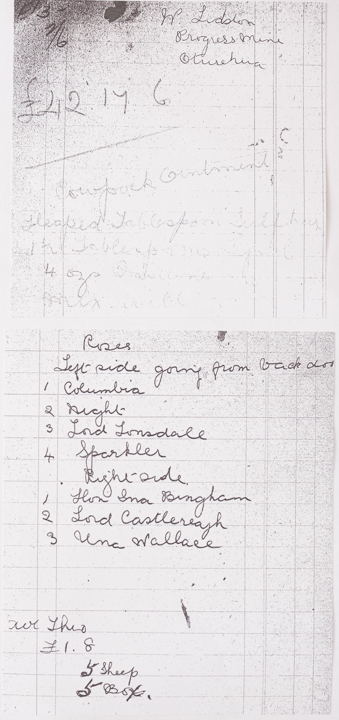 7/6
W. Liddon
Progress Mine
Oturehua
£42 17 6
Cowpock Ointment
Heaped Tablespoon Sulphur
4 ozs
Mix well
Roses
Left side going from back door
1 Columbia
2 Night
3 Lord Lonsdale
4 Sparkler
Right side
1 Hon Ina Bingham
2 Lord Castlereagh
3 Una Wallace
£1.8
5 Sheep
5 Box.